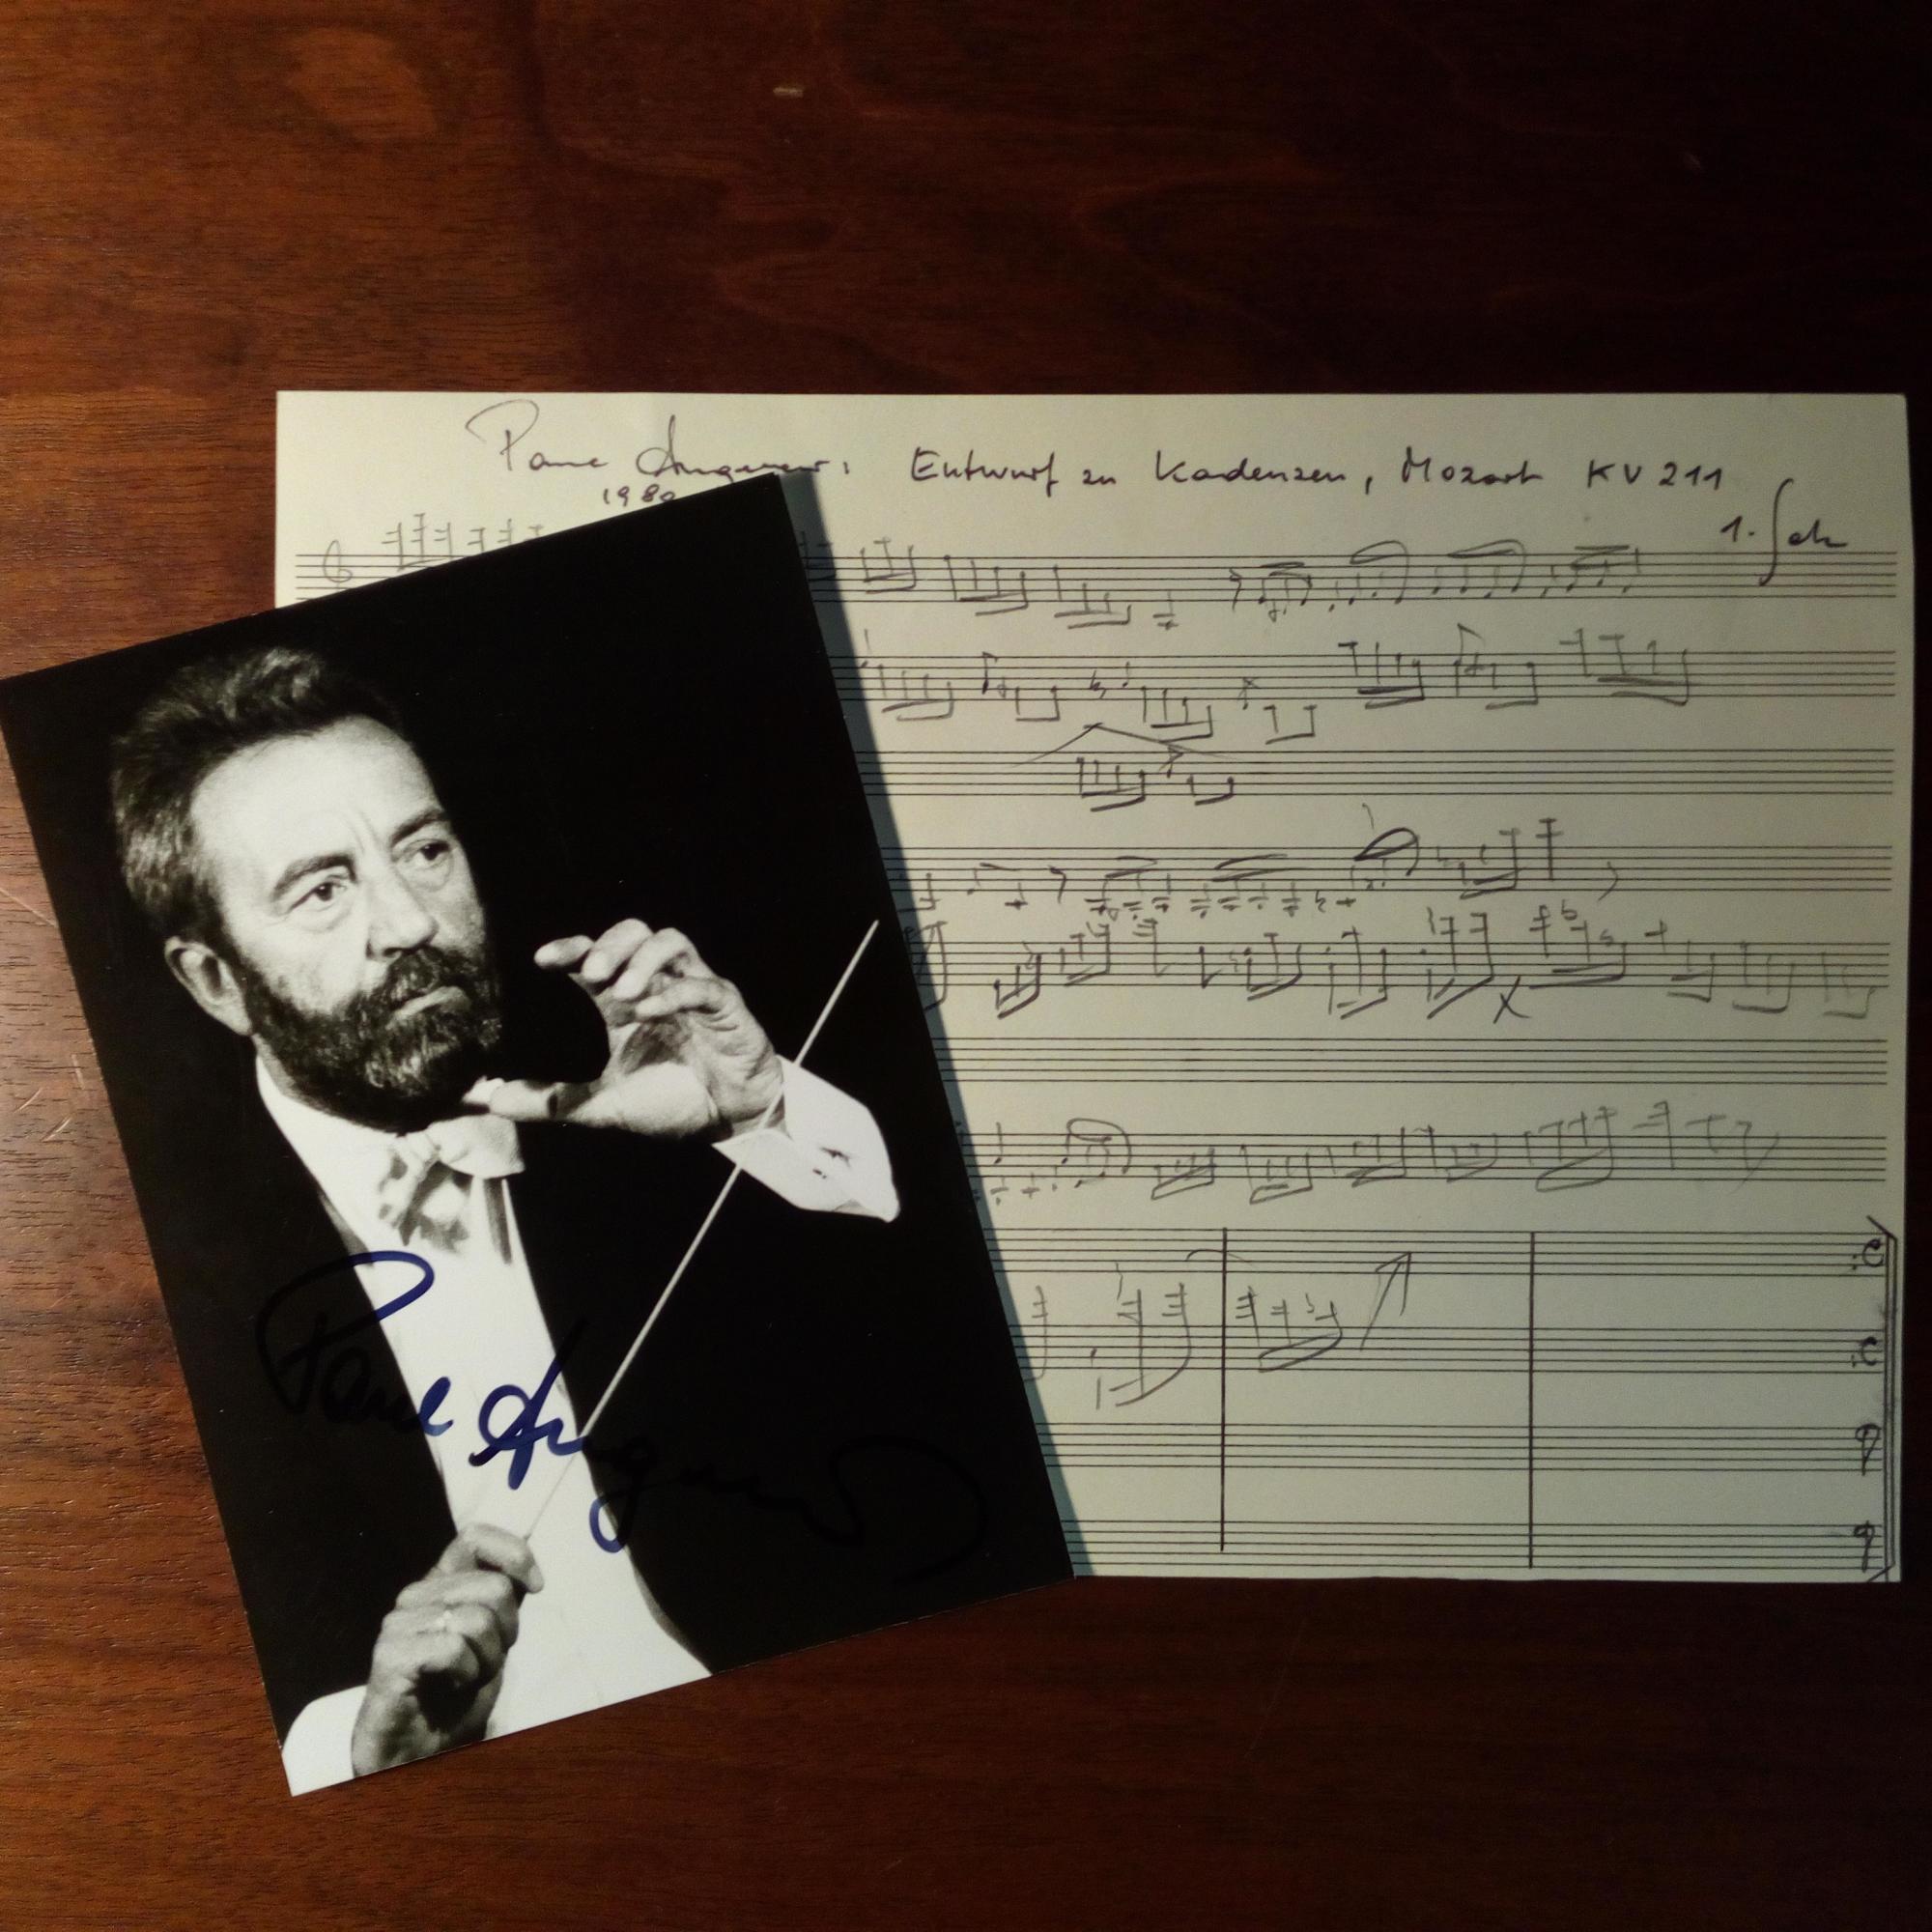 Paul Angerer: Entwurf zu Kadenzen, Mozart KV 211
1980
1. Satz
Paul Angerer